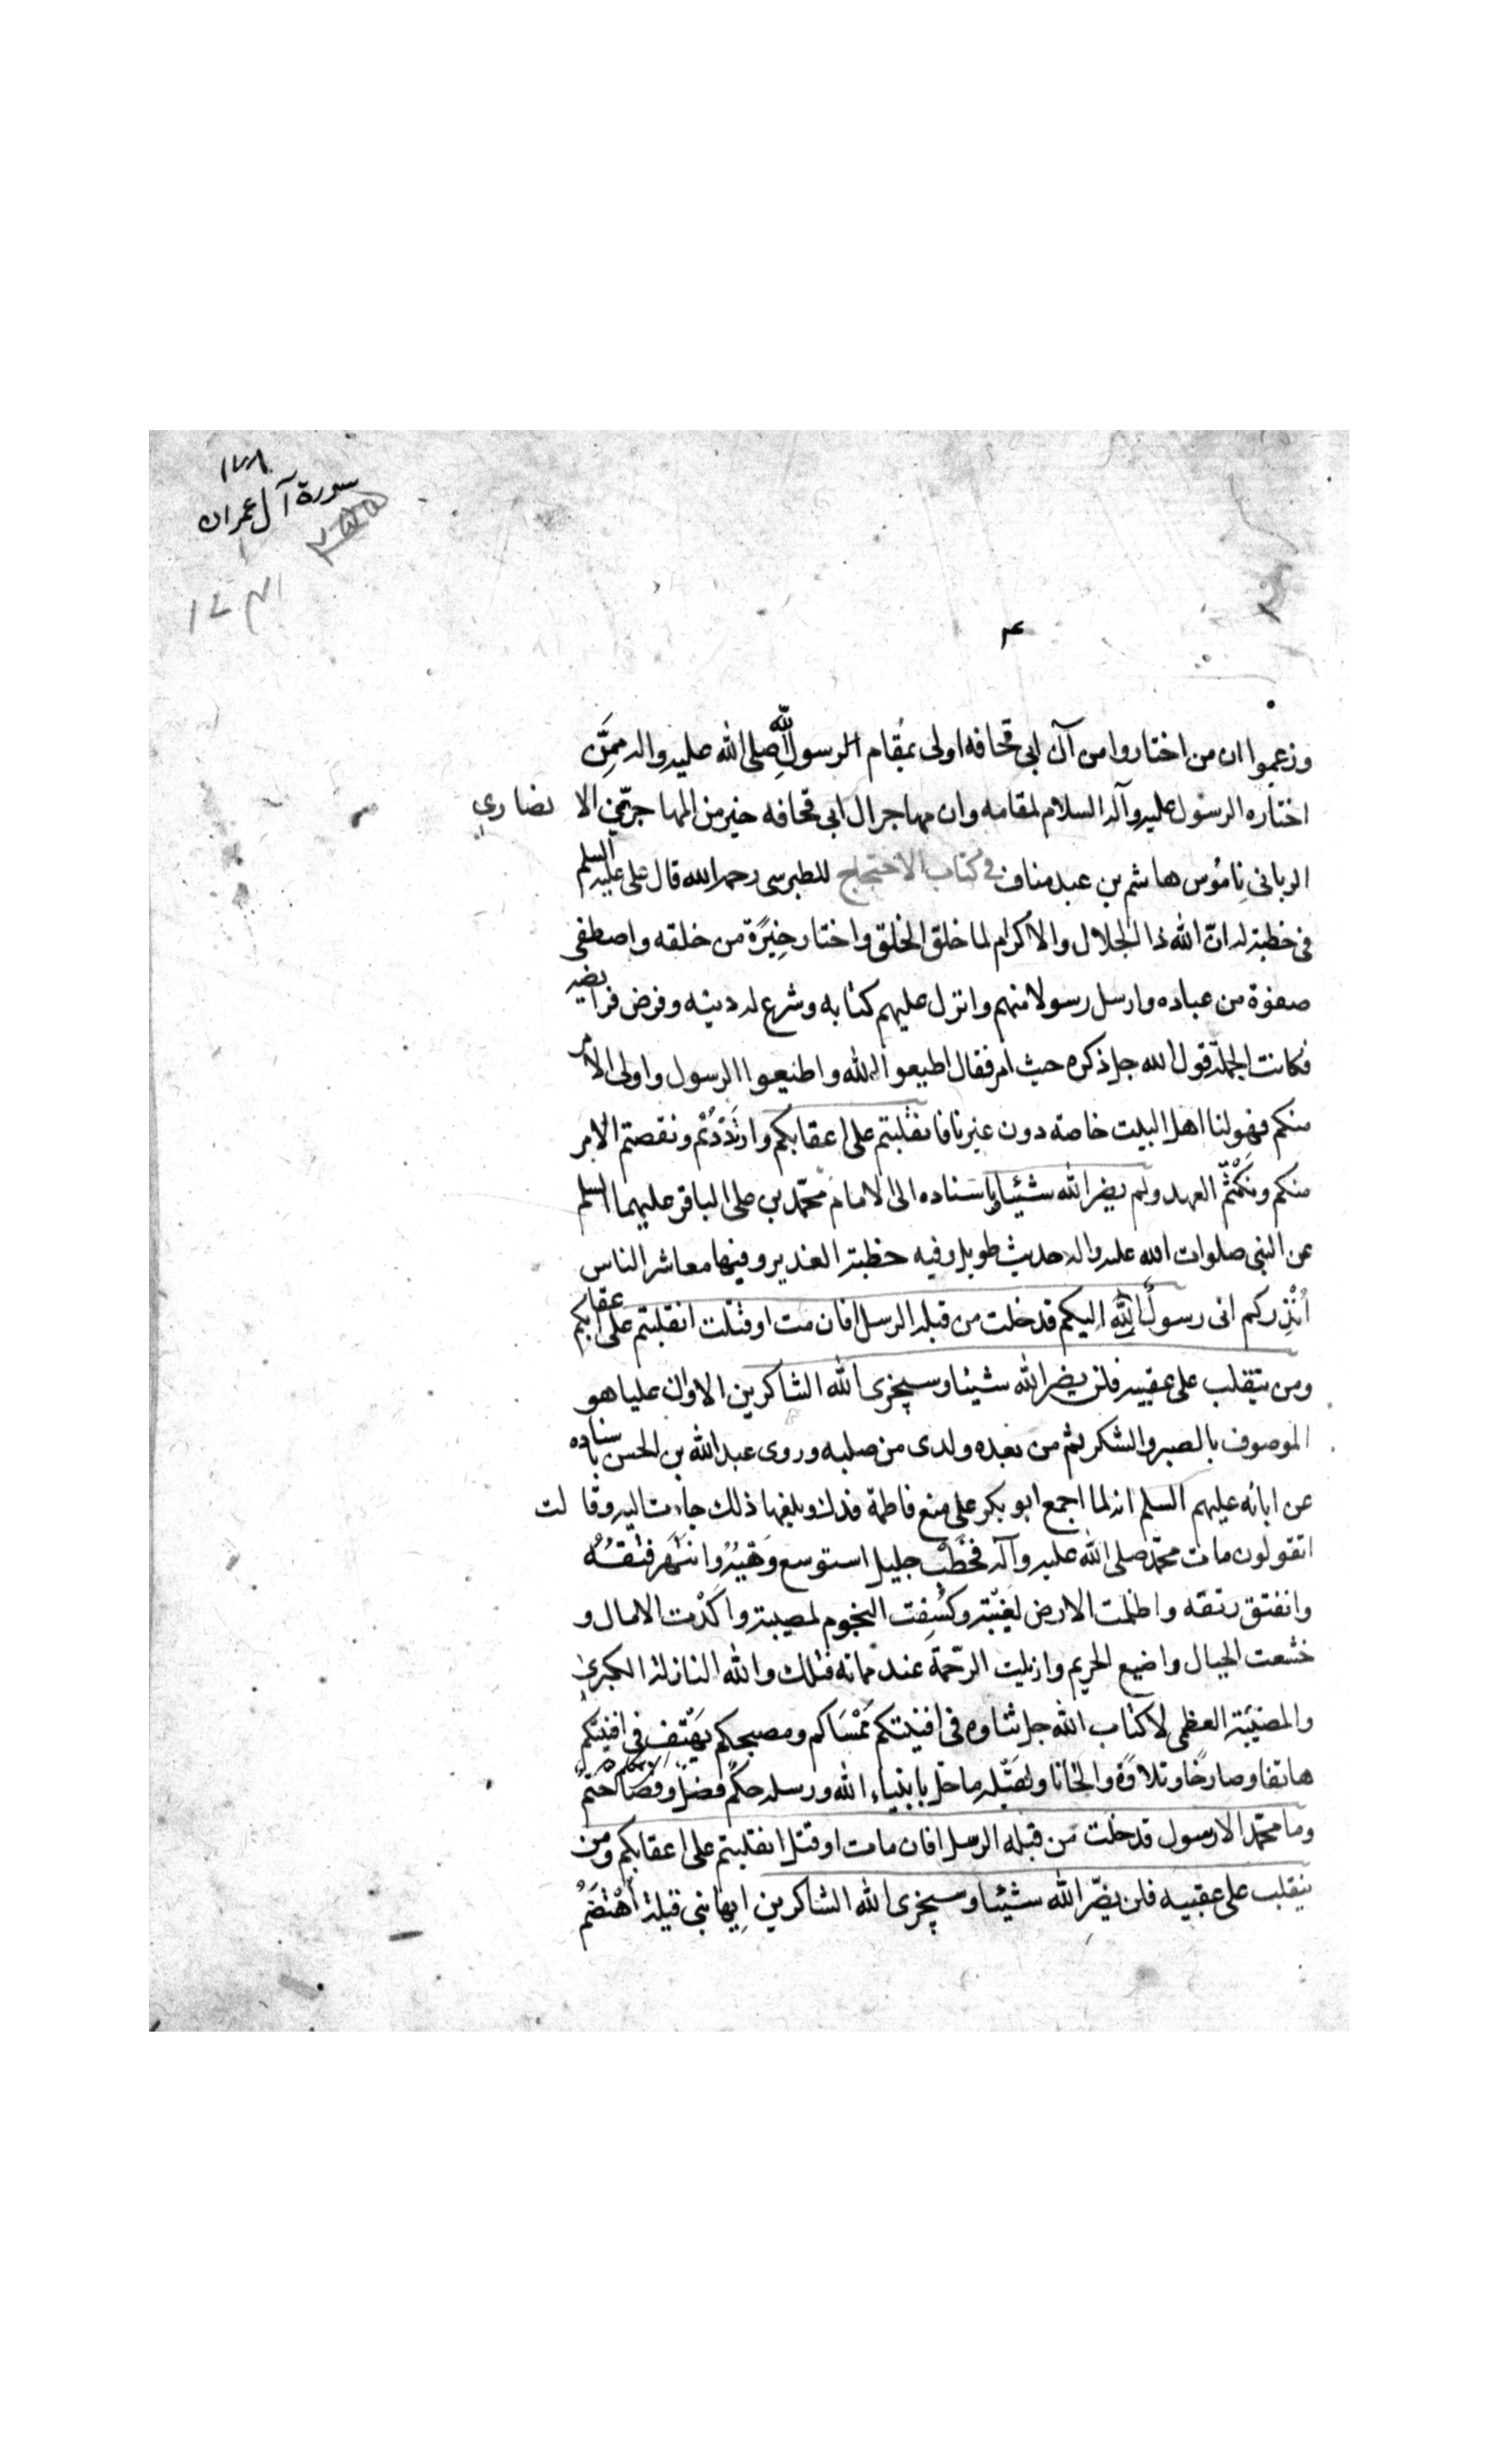 ١٧٨
سورة آل عمران
وزعموا ان من اختاروا من آل ابى قحافه اولى بمقام الرسول الله صلى الله عليه واله ممن
اختاره الرسول عليه وآله السلام لمقامه وان مهاجر ال ابى قحافه خير من المهاجرى الانصارى
الربانى ناموس هاشم بن عبد مناف فى كتاب الاحتجاج للطبرسى رحمه الله قال على عليه السلم
فى خطبة له ان الله ذا الجلال والاكرام لما خلق الخلق واختار خيرة من خلقه واصطفى
صفوة من عباده وارسل رسولا منهم وانزل عليهم كتابه وشرع له دينه وفرض فرايضه
فكانت الجملة قول الله جل ذكره حيث امر فقال اطيعوا الله واطيعوا الرسول واولى الامر
منكم فهو لنا اهل البيت خاصة دون غيرنا فانقلبتم على اعقابكم وارتددتم ونقضتم الامر
منكم ونكثتم العهد ولم يضر الله شيئا وباسناده الى الامام محمد بن على الباقر عليهما السلم
عن النبى صلوات الله عليه واله حديث طويل وفيه خطبة الغدير وفيها معاشر الناس
انذركم انى رسول الله اليكم قد خلت من قبله الرسل افان مت او قتلت انقلبتم على اعقابكم
ومن ينقلب على عقبيه فلن يضر الله شيئا وسيجزى الله الشاكرين الا وان عليا هو
الموصوف بالصبر والشكر ثم من بعده ولدى من صلبه وروى عبد الله بن الحسن باسناده
عن ابائه عليهم السلم انه لما اجمع ابو بكر على منع فاطمة فدك وبلغها ذلك جاءت اليه وقالت
اتقولون مات محمد صلى الله عليه وآله فخطب جليل استوسع وهيه وانتهر فتقه
وانفتق رتقه واظلمت الارض لغيبته وكسفت النجوم لمصيبته واكدت الامال و
خشعت الجبال واضيع الحريم وازيلت الرحمة عند مماته فتلك والله النازلة الكبرى
والمصيبة العظمى لا كتاب الله جل ثناوه فى افنيتكم ممساكم ومصبحكم يهتف فى افنيتكم
هاتفا وصارخا وتلاوة والحانا ولقبله ما حل بانبياء الله ورسله حكم فصل وقضاء حتم
وما محمد الا رسول قد خلت من قبله الرسل افان مات او قتل انقلبتم على اعقابكم ومن
ينقلب على عقبيه فلن يضر الله شيئا وسيجزى الله الشاكرين ايها بنى قيلة أهتضم